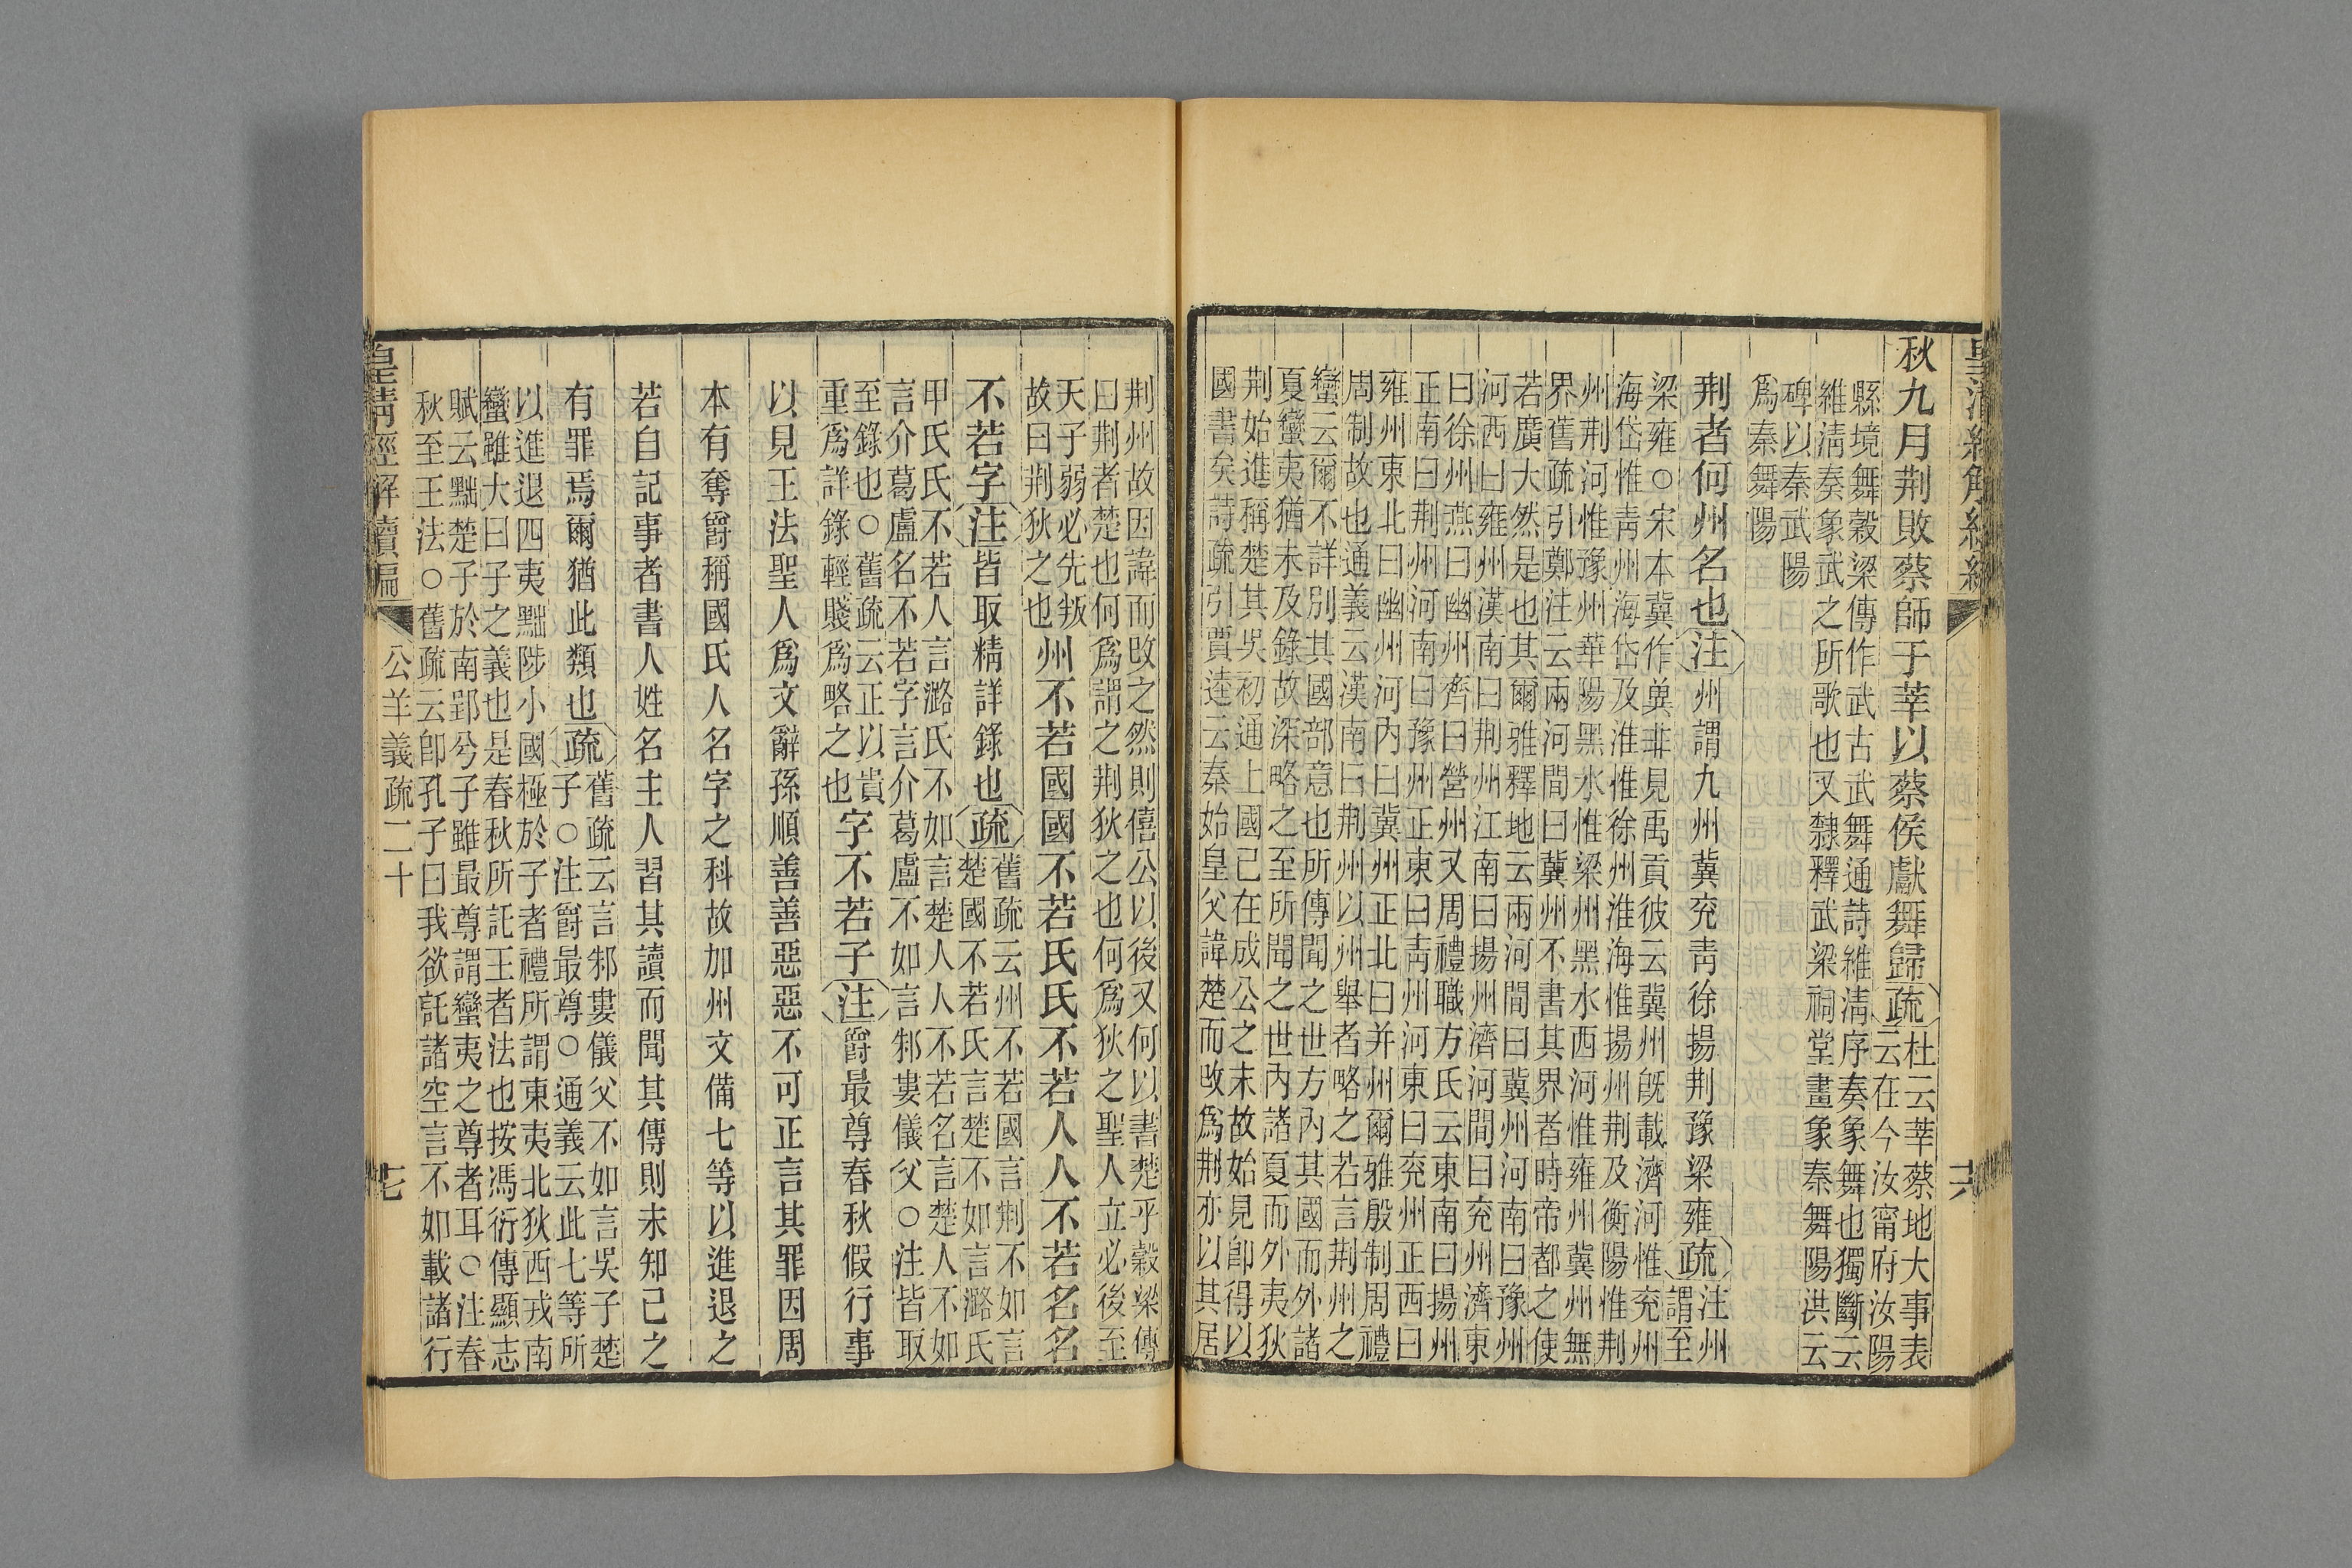 秋九月荆敗蔡師于莘以蔡侯獻舞歸疏
杜云莘蔡地大事表
云在今汝甯府汝陽
縣境舞穀梁傳作武古武舞通詩維淸序奏象舞也獨斷云
維淸奏象武之所歌也又隸釋武梁祠堂畫象秦舞陽洪云
碑以秦武陽
爲秦舞陽
荆者何州名也注州謂九州冀兗靑徐揚荆豫梁雍疏
注州
謂至
梁雍○宋本冀作兾非見禹貢彼云冀州旣載濟河惟兗州
海岱惟靑州海岱及淮惟徐州淮海惟揚州荆及衡陽惟荆
州荆河惟豫州華陽黑水惟梁州黑水西河惟雍州冀州無
界舊疏引鄭注云兩河間曰冀州不書其界者時帝都之使
若廣大然是也其爾雅釋地云兩河間曰冀州河南曰豫州
河西曰雍州漢南曰荆州江南曰揚州濟河間曰兗州濟東
曰徐州燕曰幽州齊曰營州又周禮職方氏云東南曰揚州
正南曰荆州河南曰豫州正東曰靑州河東曰兗州正西曰
雍州東北曰幽州河內曰冀州正北曰并州爾雅殷制周禮
周制故也通義云漢南曰荆州以州舉者略之若言荆州之
蠻云爾不詳別其國部意也所傳聞之世方內其國而外諸
夏蠻夷猶未及錄故深略之至所聞之世內諸夏而外夷狄
荆始進稱楚其吳初通上國已在成公之末故始見卽得以
國書矣詩疏引賈逵云秦始皇父諱楚而改爲荆亦以其居
皇淸經解續編
六
荆州故因諱而改之然則僖公以後又何以書楚乎穀梁傳
曰荆者楚也何爲謂之荆狄之也何爲狄之聖人立必後至
天子弱必先叛
故曰荆狄之也
州不若國國不若氏氏不若人人不若名名
不若字注皆取精詳錄也疏
舊疏云州不若國言荆不如言
楚國不若氏言楚不如言潞氏
甲氏氏不若人言潞氏不如言楚人人不若名言楚人不如
言介葛盧名不若字言介葛盧不如言邾婁儀父○注皆取
至錄也○舊疏云正以貴
重爲詳錄輕賤爲略之也
字不若子注爵最尊春秋假行事
以見王法聖人爲文辭孫順善善惡惡不可正言其罪因周
本有奪爵稱國氏人名字之科故加州文備七等以進退之
若自記事者書人姓名主人習其讀而聞其傳則未知己之
有罪焉爾猶此類也疏
舊疏云言邾婁儀父不如言吳子楚
子○注爵最尊○通義云此七等所
以進退四夷黜陟小國極於子者禮所謂東夷北狄西戎南
蠻雖大曰子之義也是春秋所託王者法也按馮衍傳顯志
賦云黜楚子於南郢兮子雖最尊謂蠻夷之尊者耳○注春
秋至王法○舊疏云卽孔子曰我欲託諸空言不如載諸行
皇淸經解續編
公羊義疏二十
七